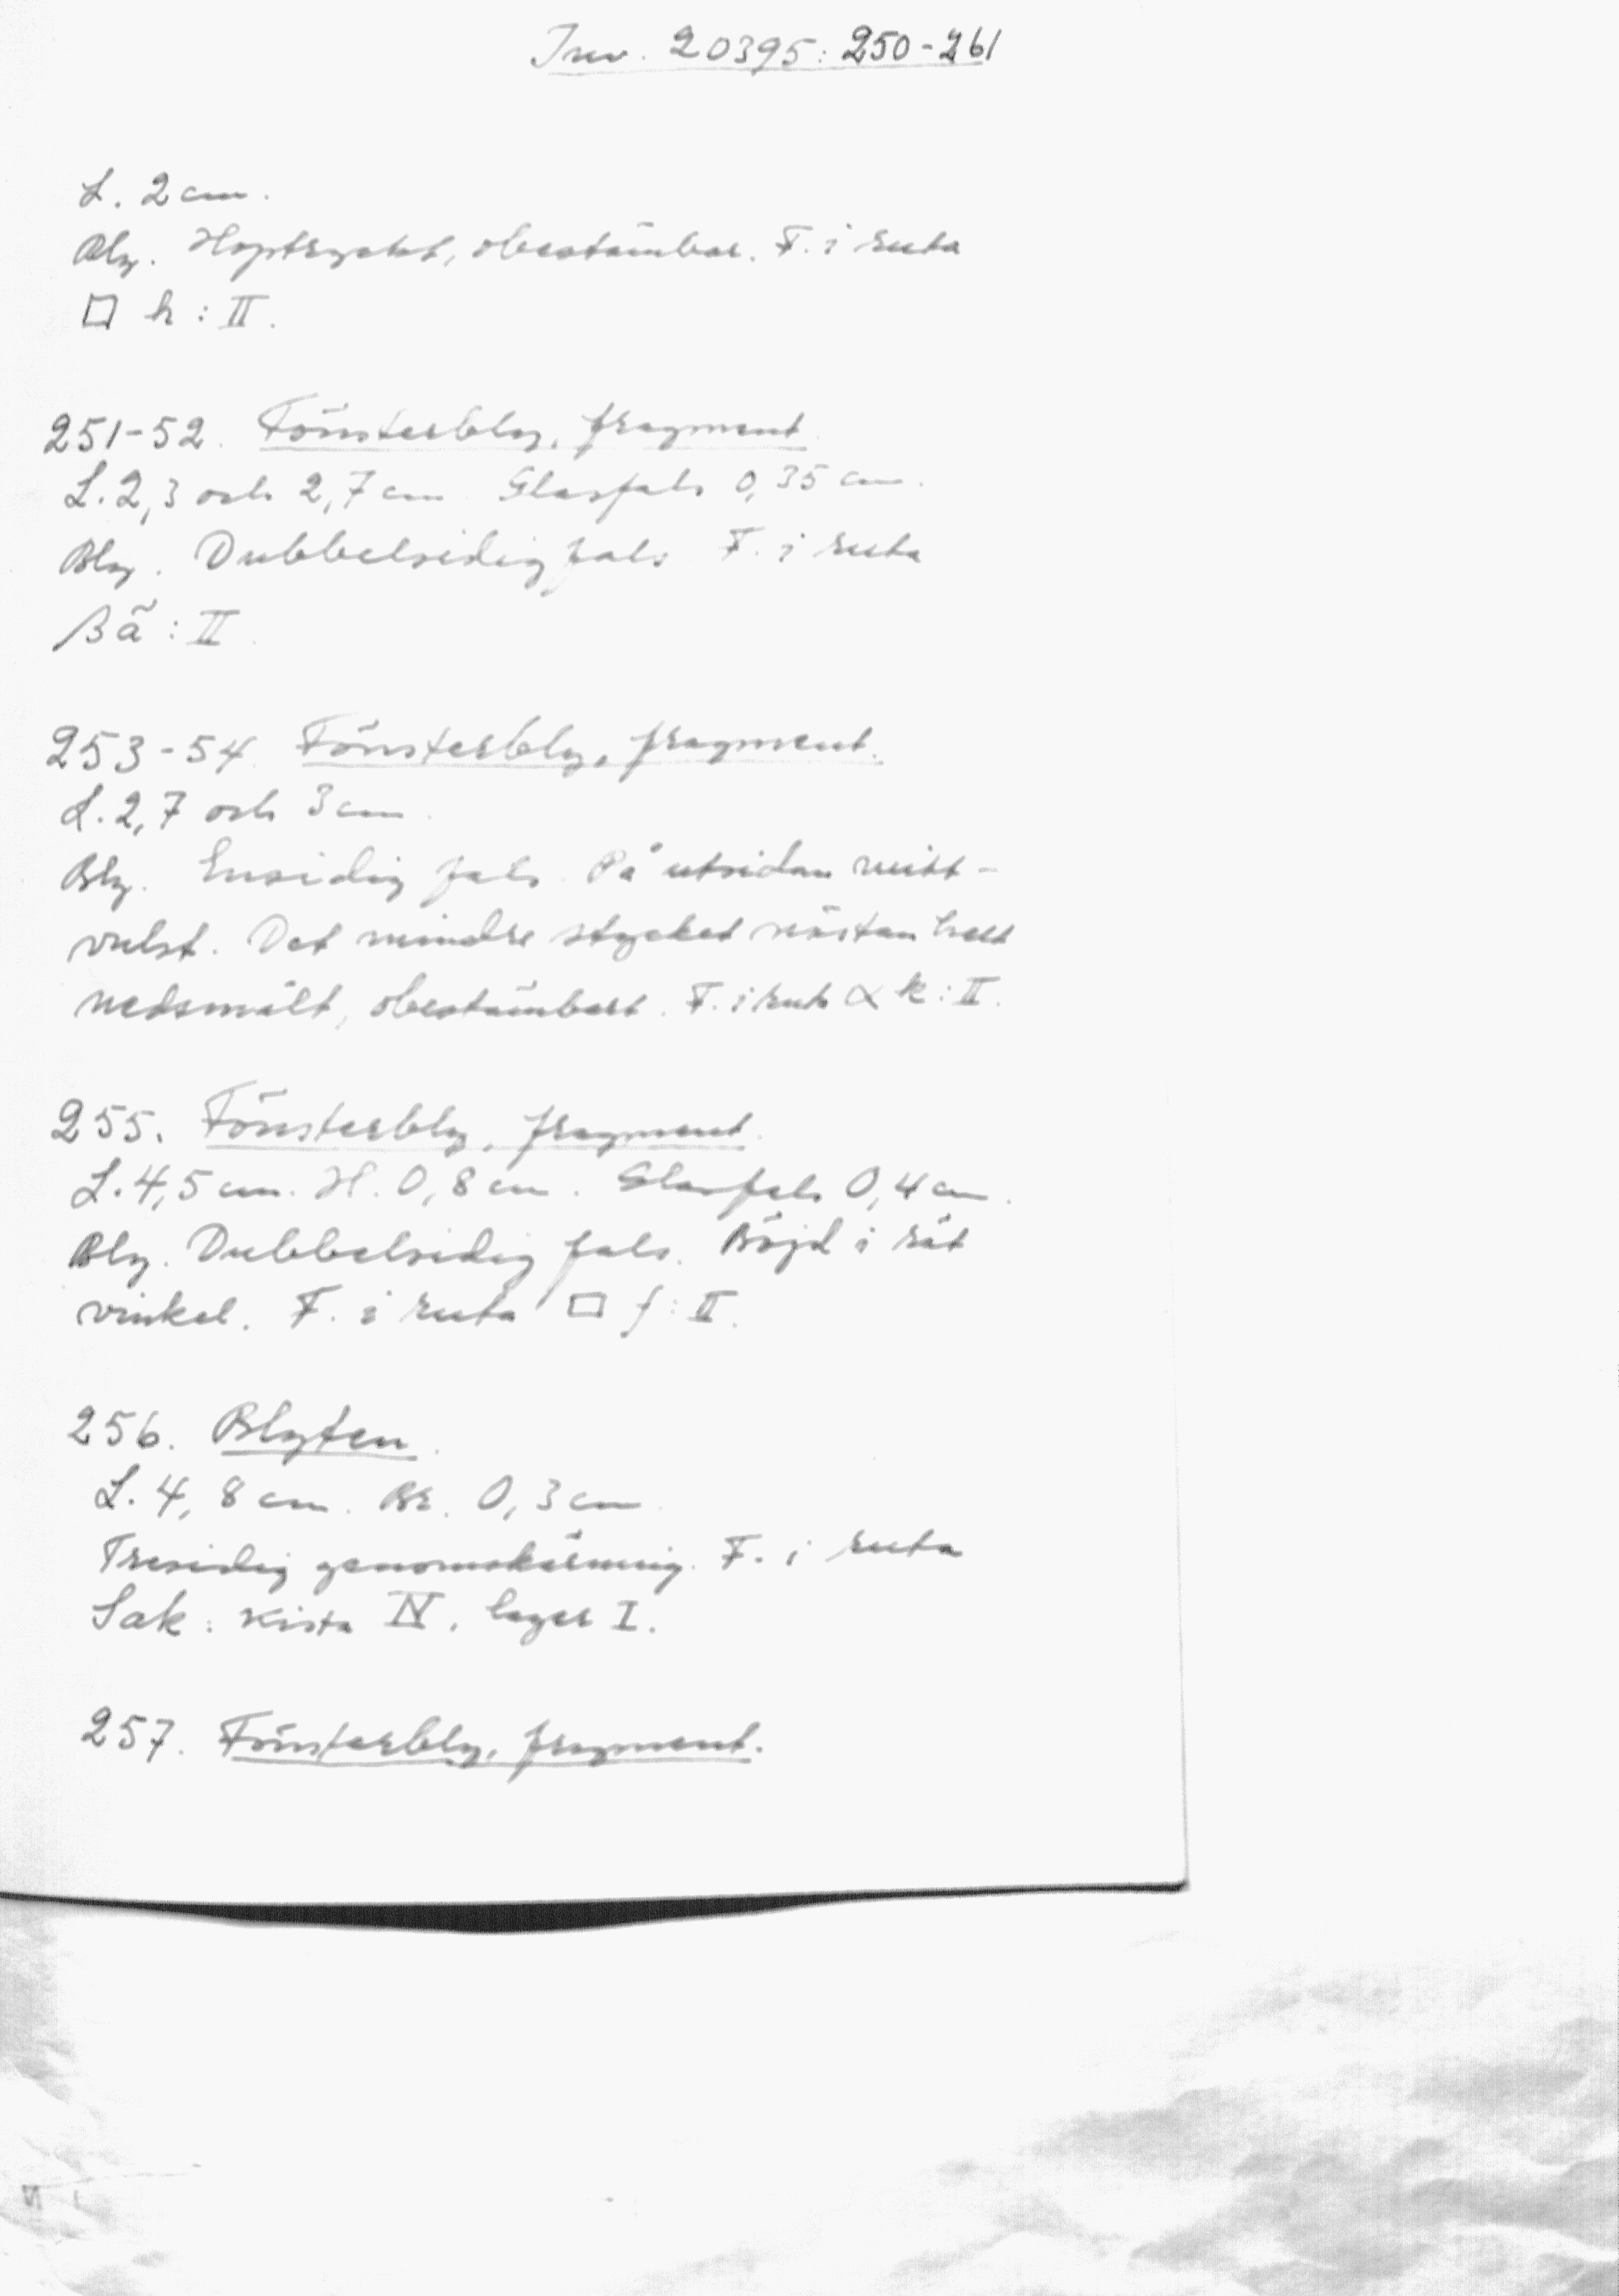 Inv. 20395: 250-261
L. 2 cm.
Bly. Hoptryckt, obestämbar. F. i ruta
□ h : II.
251-52. Fönsterbly, fragment
L. 2,3 och 2,7 cm Glasfals 0,35 cm.
Bly. Dubbelsidig fals F. i ruta
β ä : II.
253-54 Fönsterbly, fragment.
L. 2,7 och 3 cm.
Bly. Ensidig fals. På utsidan mitt-
vulst. Det mindre stycket nästan helt
nedsmält, obestämbart. F. i ruta α k : II.
255. Fönsterbly, fragment.
L. 4,5 cm. H. 0,8 cm. Glasfals 0,4 cm.
Bly. Dubbelsidig fals. Böjd i rät
vinkel. F. i ruta □ f : II.
256. Blyten.
L. 4,8 cm. Br. 0,3 cm
Tresidig genomskärning. F. i ruta
Sak. kista IV, lager I.
257. Fönsterbly, fragment.